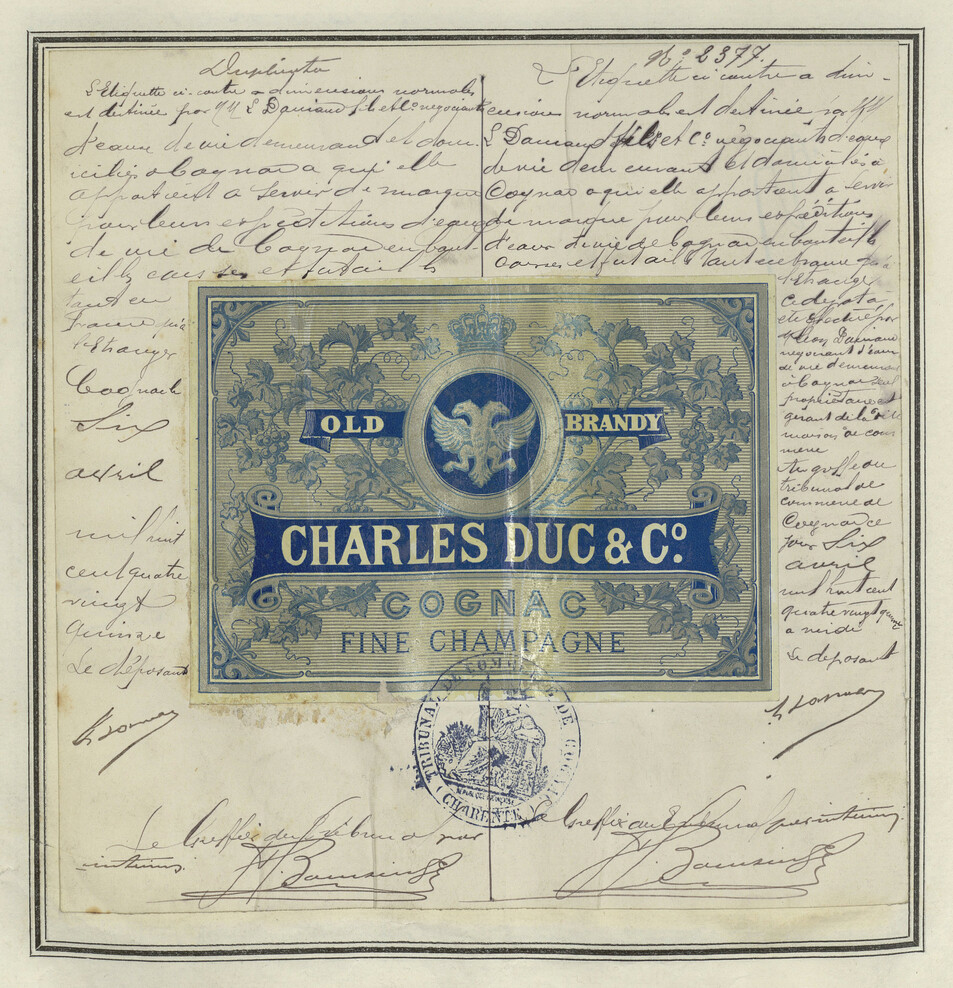 Duplicata
L'Etiquette ci-contre a dimensions normales
est destinée par MM L Damiand fils et Cº négociants
d'eaux de vie demeurant et domi-
ciliés à Cognac a qui elle
appartient a servir de marque
pour leurs expéditions d'eaux
de vie de Cognac en bout-
eilles caisses et futailles
tant en
France qu'à
l'étranger
Cognac le
Six
avril
mil huit
cent quatre
vingt
quinze
Le déposant
Nº 2377.
L'Etiquette ci contre a dim-
ensions normales est destinée par MM
L Damiand fils et Cº négociants d'eaux
de vie demeurant et domiciliés à
Cognac a qui elle appartient a servir
de marque pour leurs expéditions
d'eaux de vie de Cognac en bouteilles
caisses et futailles tant en France qu'à
l'étranger
Ce dépôt a
été effectué par
Léon Damiand
négociant d'eaux
de vie demeurant
à Cognac seul
propriétaire et
gérant de la dite
maison de com
merce
Au greffe du
tribunal de
commerce de
Cognac ce
jour Six
avril
mil huit cent
quatre vingt quinze
a midi
Le déposant
OLD BRANDY
CHARLES DUC & Cº
COGNAC
FINE CHAMPAGNE
TRIBUNAL DE COMMERCE DE COGNAC
(CHARENTE)
Le Greffier du Tribunal par
intérim.
Le Greffier du Tribunal par intérim.